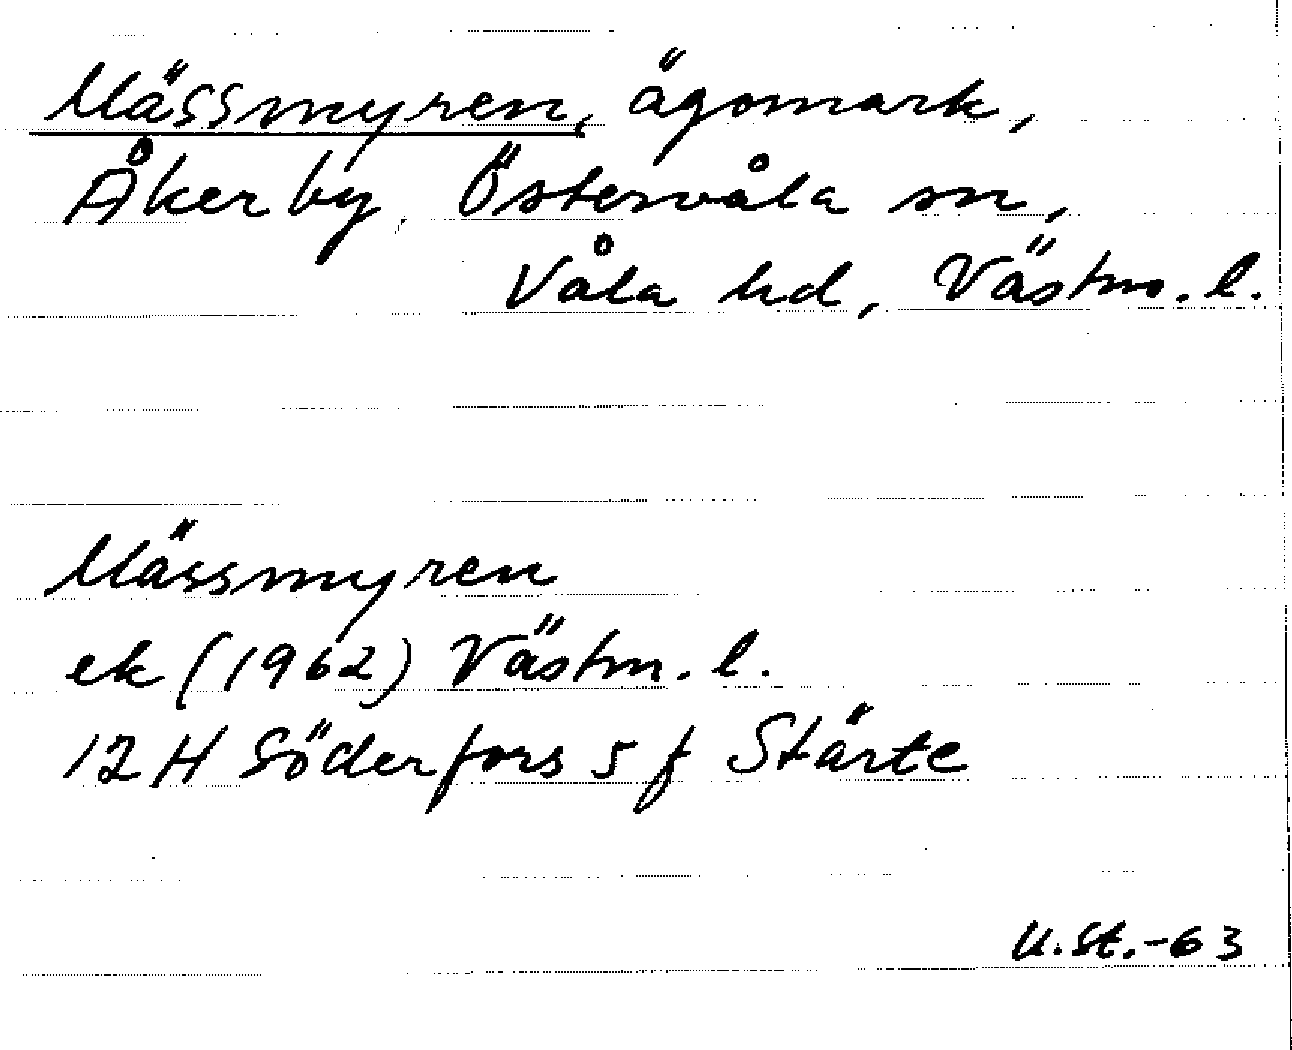 Mässmyren, ägomark,
Åkerby, Östervåla sn,
Våla hd, Västm. l.
Mässmyren
ek (1962) Västm. l.
12 H Söderfors 5 f Stärte
U.St.-63